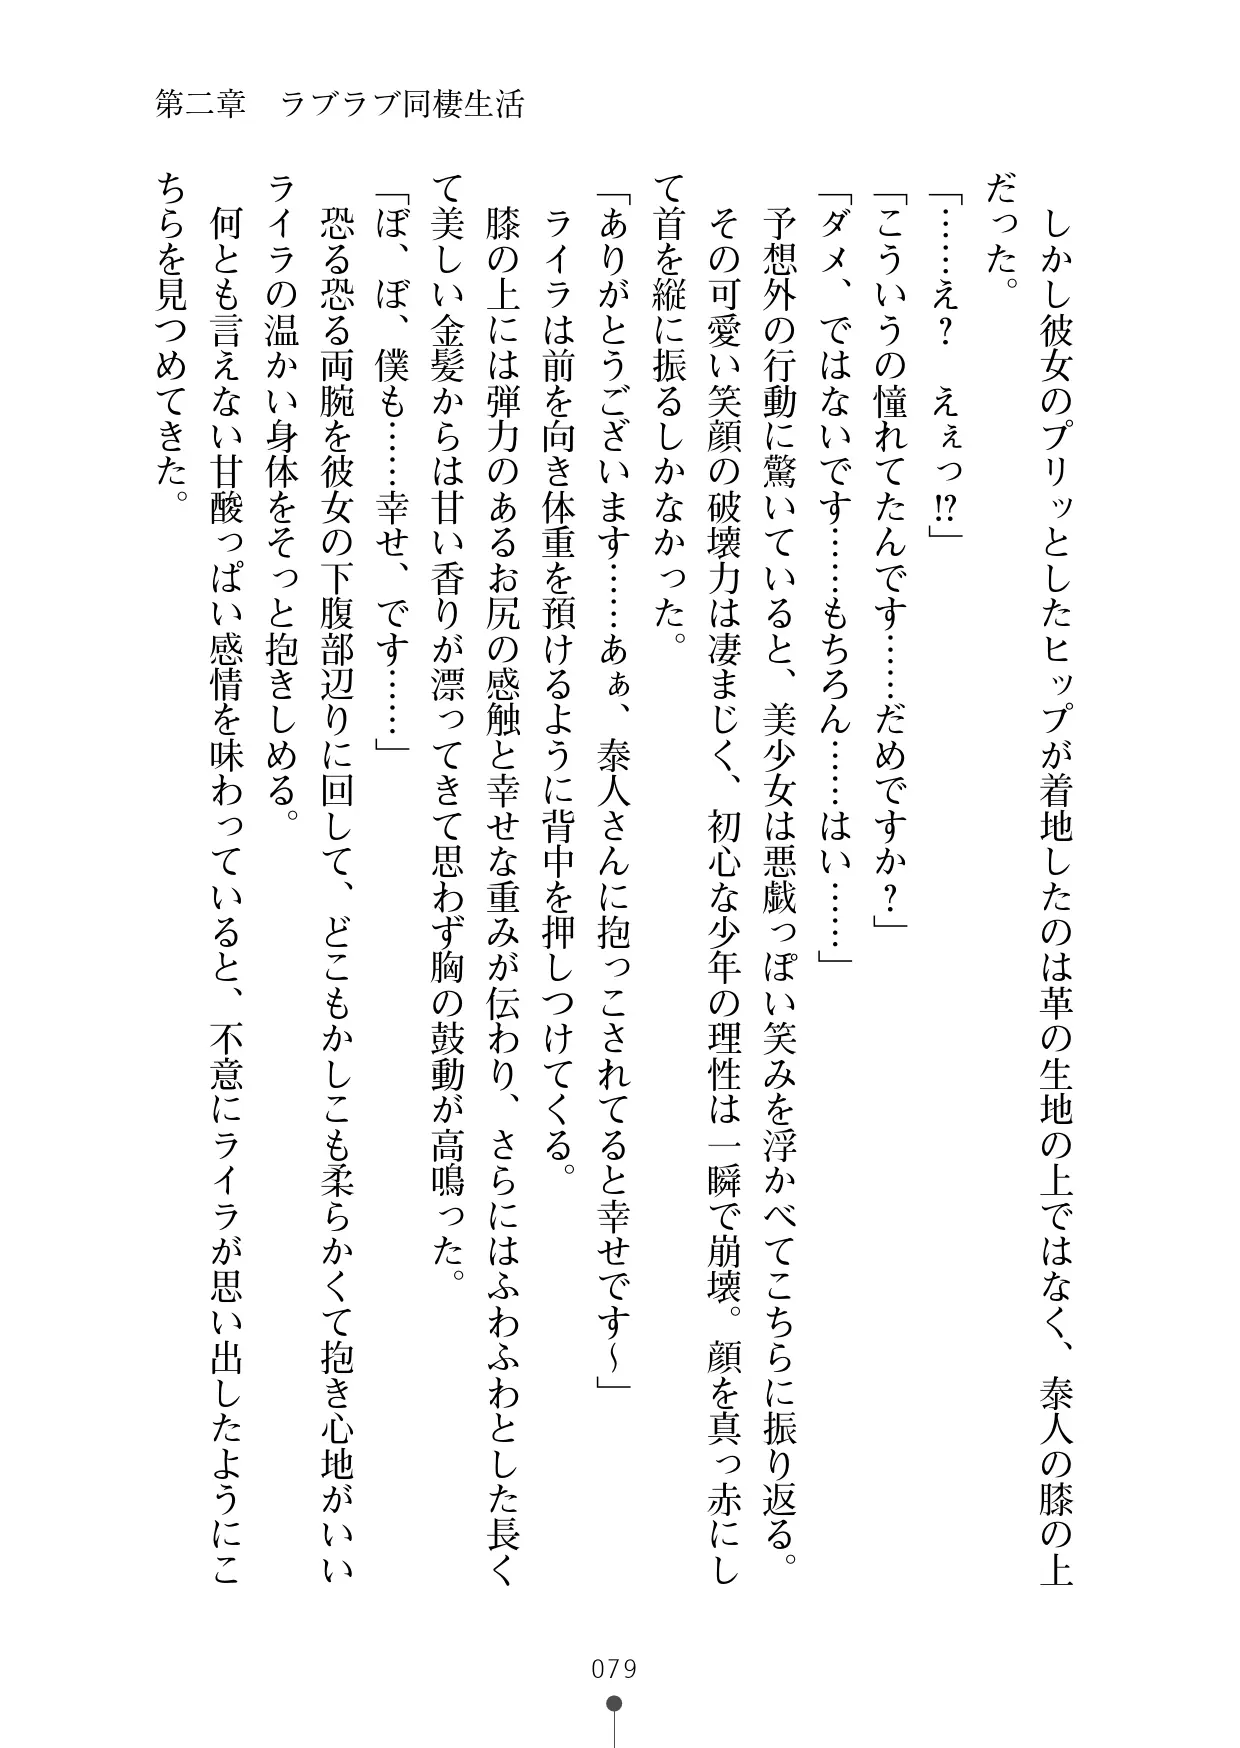 第二章　ラブラブ同棲生活
　しかし彼女のプリッとしたヒップが着地したのは革の生地の上ではなく、泰人の膝の上
だった。
「……え？　えぇっ!?」
「こういうの憧れてたんです……だめですか？」
「ダメ、ではないです……もちろん……はい……」
　予想外の行動に驚いていると、美少女は悪戯っぽい笑みを浮かべてこちらに振り返る。
　その可愛い笑顔の破壊力は凄まじく、初心な少年の理性は一瞬で崩壊。顔を真っ赤にし
て首を縦に振るしかなかった。
「ありがとうございます……あぁ、泰人さんに抱っこされてると幸せです～」
　ライラは前を向き体重を預けるように背中を押しつけてくる。
　膝の上には弾力のあるお尻の感触と幸せな重みが伝わり、さらにはふわふわとした長く
て美しい金髪からは甘い香りが漂ってきて思わず胸の鼓動が高鳴った。
「ぼ、ぼ、僕も……幸せ、です……」
　恐る恐る両腕を彼女の下腹部辺りに回して、どこもかしこも柔らかくて抱き心地がいい
ライラの温かい身体をそっと抱きしめる。
　何とも言えない甘酸っぱい感情を味わっていると、不意にライラが思い出したようにこ
ちらを見つめてきた。
079